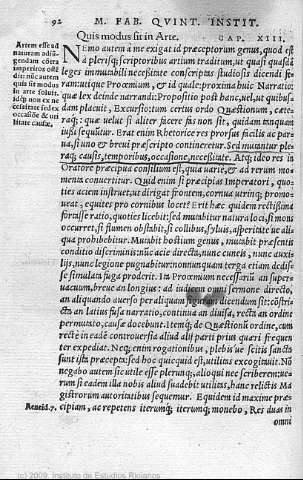 92 M. FAB. QVINT. INSTIT.
Quis modus sit in Arte. CAP. XIII.
Artem esse ad
naturam adiū-
gendam cōtra
imperitos ora-
dit: nūc autem
quis modus sit
in arte soluit:
idq́; non ex ne
cessitate sed ex
occasione & vti
litate causæ.
NEmo autem à me exigat id præceptorum genus, quod est
à plerisq́; scriptoribus artium traditum, ut quasi quasdā
leges immutabili necessitate conscriptas studiosis dicendi fe-
ram: utique Proœmium, & id quale: proxima huic Narratio:
quæ lex deinde narrandi: Propositio post hanc, uel, ut quibus
dam placuit, Excursio: tum certus ordo Quæstionum, cæte-
raq́;: quæ uelut si aliter facere fas non sit, quidam tanquam
iussi sequuntur. Erat enim Rhetorice res prorsus facilis ac par-
ua, si uno & breui præscripto contineretur. Sed mutantur ple-
raq́; causis, temporibus, occasione, necessitate. Atq́; ideo res in
Oratore præcipua consilium est, quia uariè, & ad rerum mo-
menta conuertitur. Quid enim si præcipias Imperatori, quo-
ties aciem instruet, ut dirigat frontem, cornua utrinq́; promo-
ueat, equites pro cornibus locet? Erit hæc quidem rectissima
fortasse ratio, quoties licebit: sed mutabitur natura loci, si mons
occurret, si flumen obstabit, si collibus, syluis, asperitate ue aliqua
prohibebitur. Mutabit hostium genus, mutabit præsentis
conditio discriminis: nūc acie directa, nunc cuneis, nunc auxi-
lijs, nunc legione pugnabitur: nonnunquam terga etiam dedis-
se simulata fuga proderit. Ita Proœmium necessariū an super-
uacuum, breue an longius: ad iudicem omni sermone directo,
an aliquando auerso per aliquam figuram dicendum sit: cōstri-
cta an latius fusa narratio, continua an diuisa, recta an ordine
permutato, causæ docebunt. Itemq́; de Quæstionū ordine, cum
rectè in eadē controuersia aliud alij parti prius quæri frequen-
ter expediat. Neq́; enim rogationibus, plebis ue scitis sancta
sunt ista præcepta: sed hoc quicquid est, utilitas excogitauit. Nō
negabo autem sic utile esse plerunq́;, alioqui nec scriberem: ue-
rum si eadem illa nobis aliud suadebit utilitas, hanc relictis Ma
gistrorum autoritatibus sequemur. Equidem id maximè præ-
Aeneid.7. cipiam, ac repetens iterumq́; iterumq́; monebo, Res duas in
omni
(c) 2009, Instituto de Estudios Riojanos